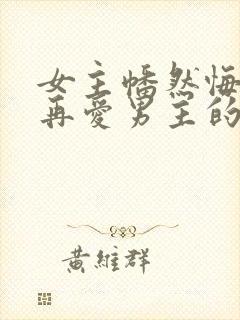 女主幡然悔
再爱男主的
黄维群